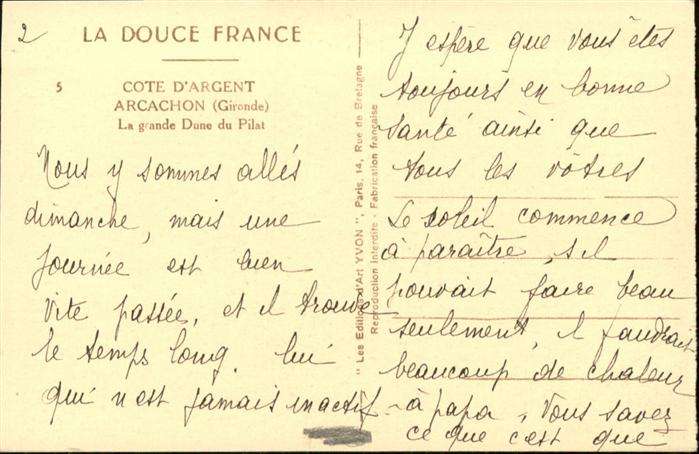 2
LA DOUCE FRANCE
5 COTE D'ARGENT
ARCACHON (Gironde)
La grande Dune du Pilat
Nous y sommes allés
dimanche, mais une
journée est bien
vite passée, et il trouve
le temps long, lui
qui n'est jamais inactif -
" Les Editions d'Art YVON ", Paris, 14, Rue de Bretagne
Reproduction Interdite - Fabrication française
J'espère que vous êtes
toujours en bonne
santé ainsi que
tous les vôtres
Le soleil commence
à paraître, s'il
pouvait faire beau
seulement, il faudrait
beaucoup de chaleur
à papa, vous savez
ce que c'est que